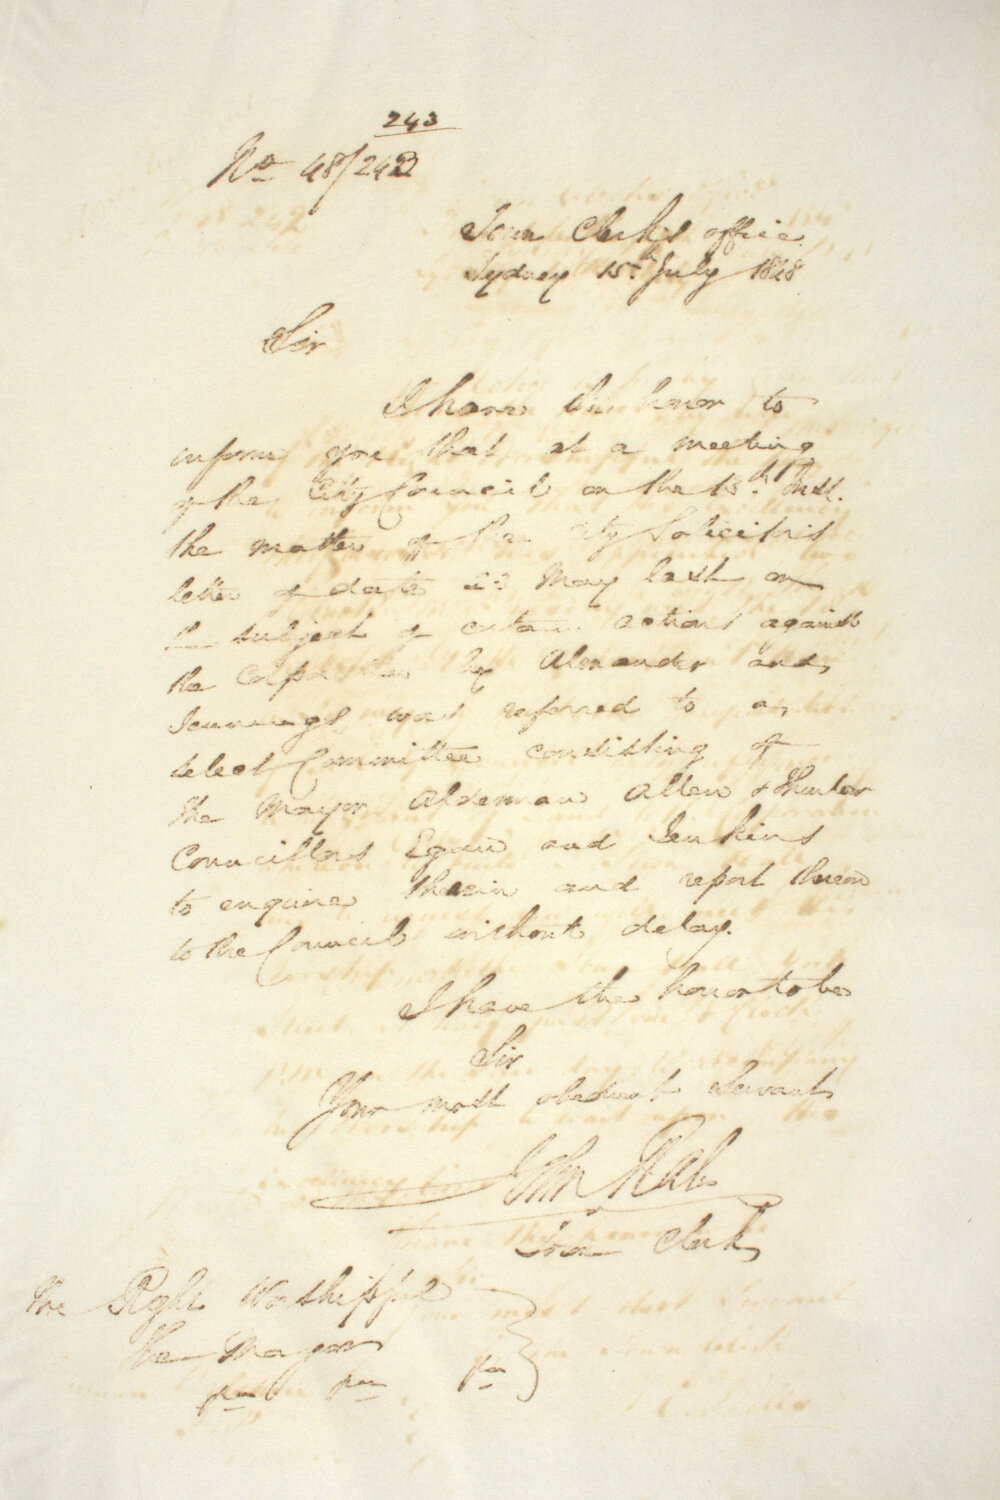 243
No 48/242
Town Clerk's office
Sydney 15th July 1848
Sir
I have the honor to
inform you that at a meeting
of the City Council on the 13th Inst.
the matter of the City Solicitor's
letter of date 23 May last on
the subject of certain actions against
the Corporation by Alexander and
Jennings was referred to a
select Committee consisting of
the Mayor Alderman Allen & Thurlow
Councillors Egan and Jenkins
to enquire therein and report thereon
to the Council without delay.
I have the honor to be
Sir
Your most obedient Servant
John Rae
Town Clerk
The Right Worshipful
the Mayor